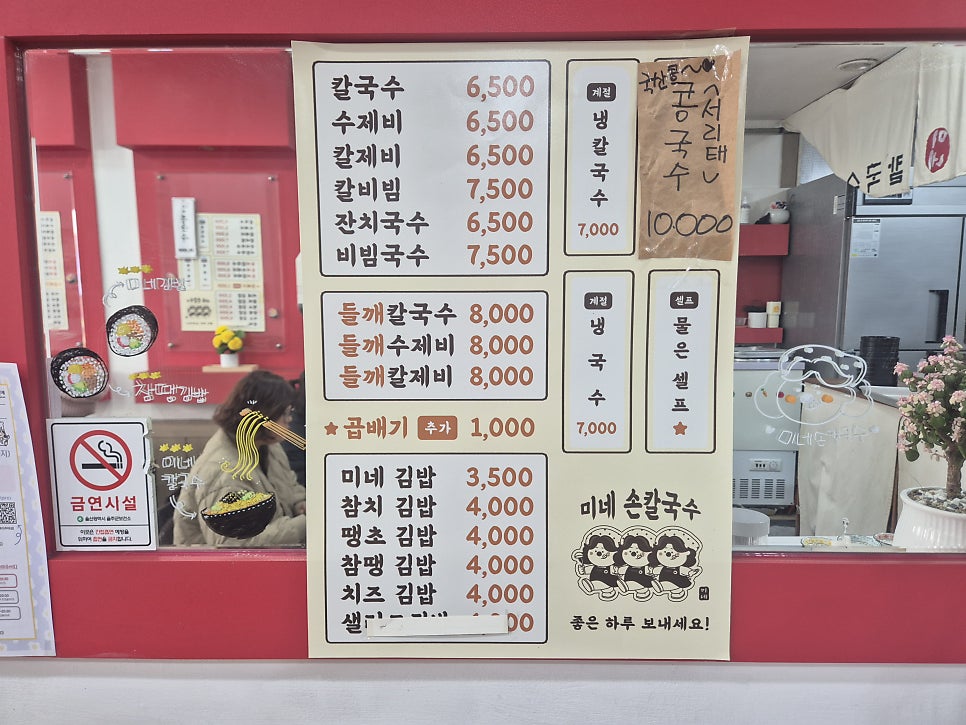 칼국수 6,500
수제비 6,500
칼제비 6,500
칼비빔 7,500
잔치국수 6,500
비빔국수 7,500
들깨칼국수 8,000
들깨수제비 8,000
들깨칼제비 8,000
곱배기 추가 1,000
미네 김밥 3,500
참치 김밥 4,000
땡초 김밥 4,000
참땡 김밥 4,000
치즈 김밥 4,000
계절
냉칼국수
7,000
국산콩~
콩국수
서리태
10.000
계절
냉국수
7,000
셀프
물은셀프
미네 손칼국수
좋은 하루 보내세요!
미네김밥
참땡김밥
미네
칼국수
금연시설
울산광역시 울주군보건소
이곳은 간접흡연 예방을
위하여 흡연을 금지합니다.
미네손칼국수